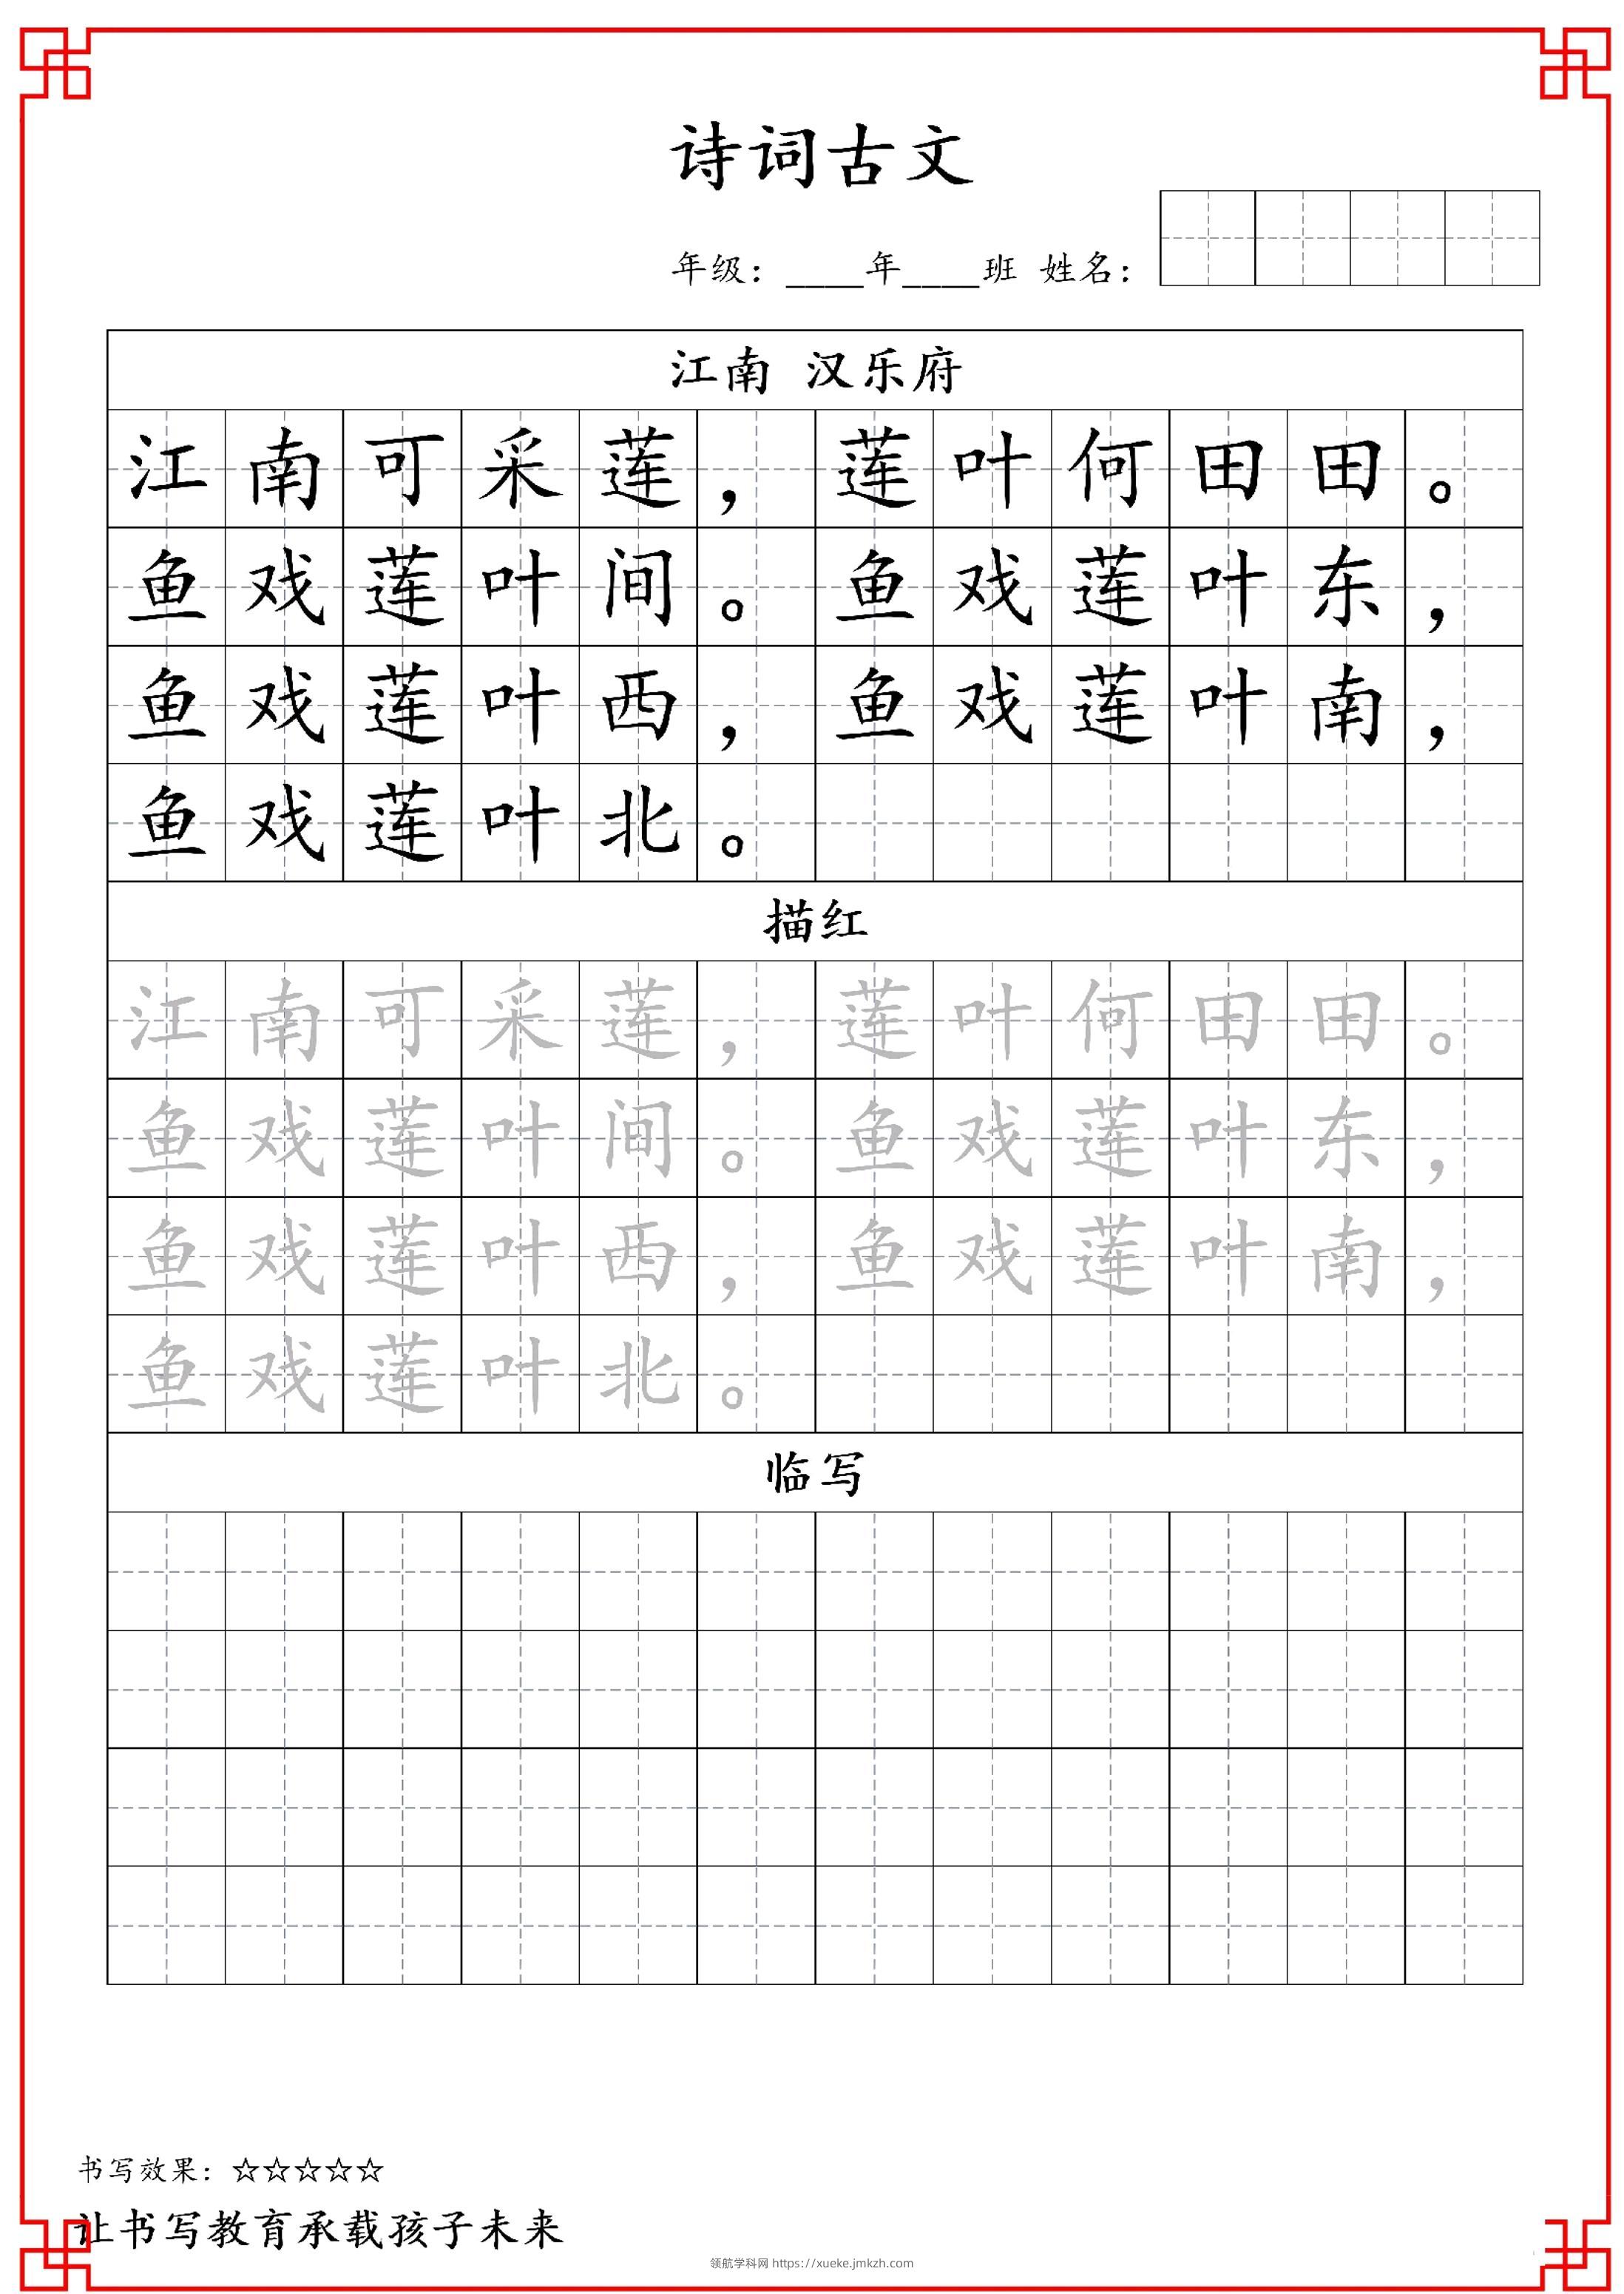 诗词古文
年级：____年____班 姓名：
江南 汉乐府
江南可采莲，莲叶何田田。
鱼戏莲叶间。鱼戏莲叶东，
鱼戏莲叶西，鱼戏莲叶南，
鱼戏莲叶北。
描红
江南可采莲，莲叶何田田。
鱼戏莲叶间。鱼戏莲叶东，
鱼戏莲叶西，鱼戏莲叶南，
鱼戏莲叶北。
临写
书写效果：☆☆☆☆☆
让书写教育承载孩子未来
领航学科网 https://xueke.jmkzh.com